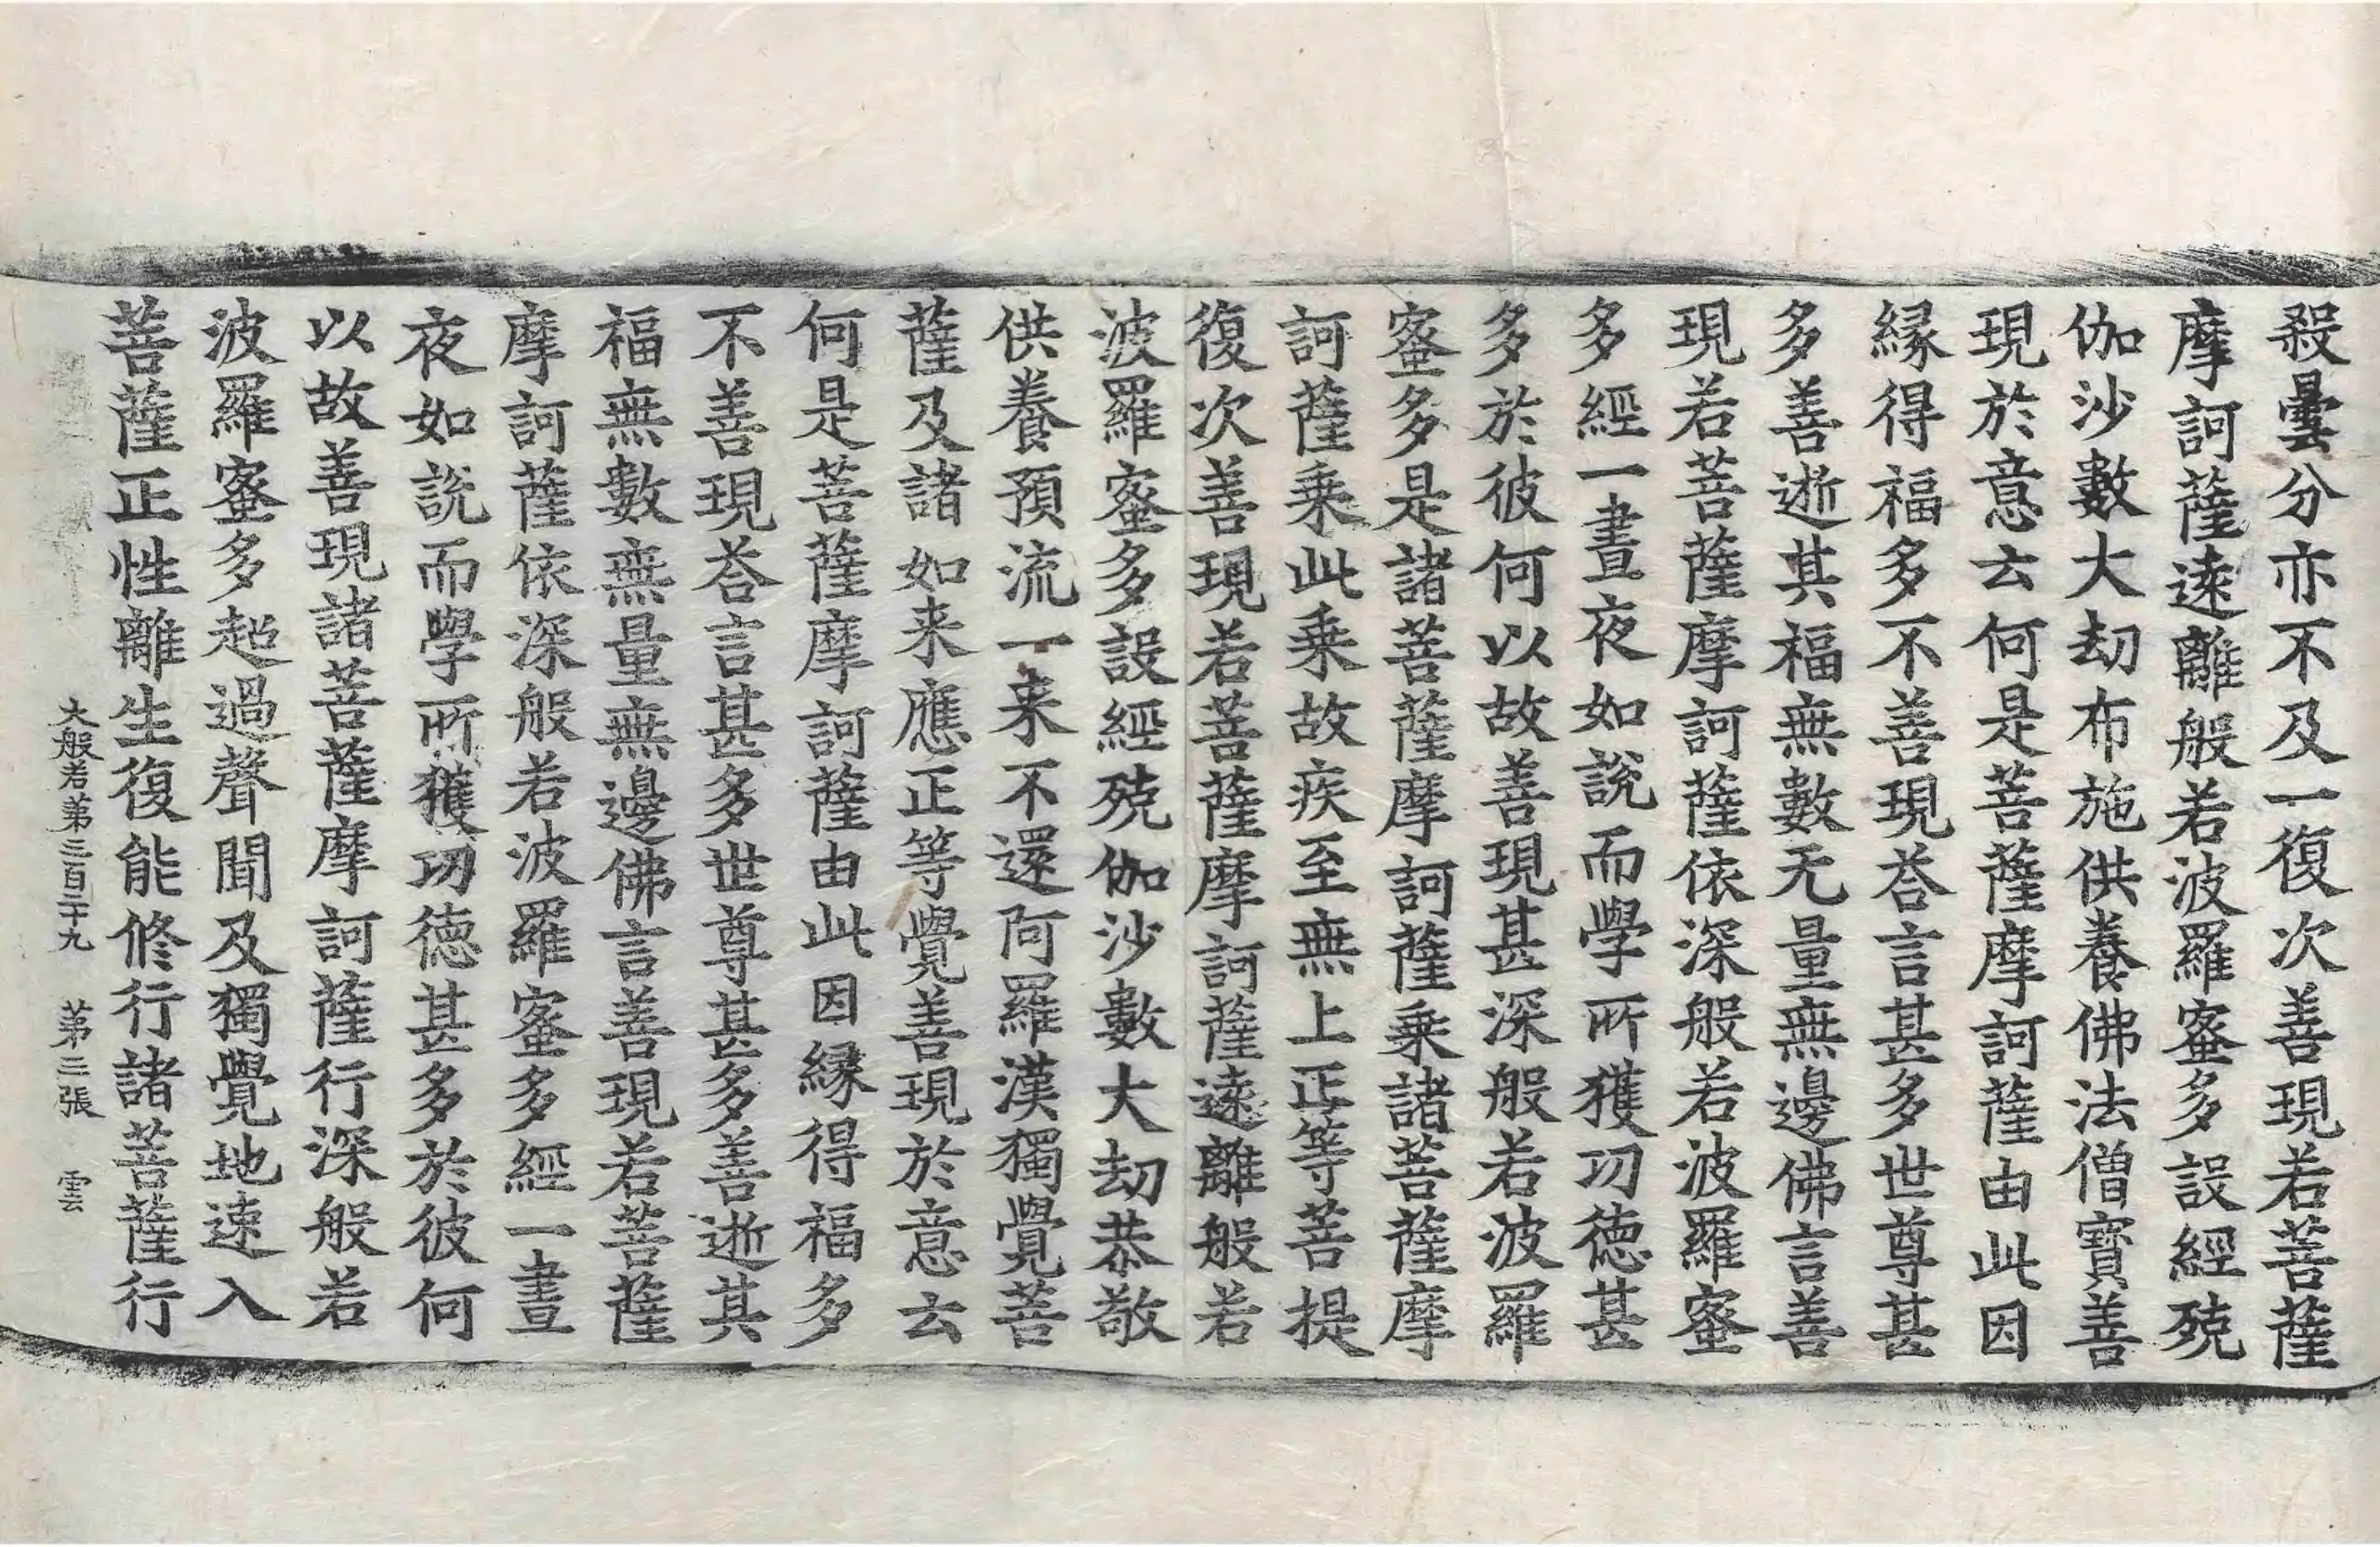 殺曇分亦不及一復次善現若菩薩
摩訶薩遠離般若波羅蜜多設經殑
伽沙數大劫布施供養佛法僧寶善
現於意云何是菩薩摩訶薩由此因
緣得福多不善現荅言甚多世尊甚
多善逝其福無數无量無邊佛言善
現若菩薩摩訶薩依深般若波羅蜜
多經一晝夜如說而學所獲功德甚
多於彼何以故善現甚深般若波羅
蜜多是諸菩薩摩訶薩乗諸菩薩摩
訶薩乗此乗故疾至無上正等菩提
復次善現若菩薩摩訶薩遠離般若
波羅蜜多設經殑伽沙數大劫恭敬
供養預流一来不還阿羅漢獨覺菩
薩及諸如来應正等覺善現於意云
何是菩薩摩訶薩由此因緣得福多
不善現荅言甚多世尊甚多善逝其
福無數無量無邊佛言善現若菩薩
摩訶薩依深般若波羅蜜多經一晝
夜如說而學所獲功德甚多於彼何
以故善現諸菩薩摩訶薩行深般若
波羅蜜多超過聲聞及獨覺地速入
菩薩正性離生復能修行諸菩薩行
大般若第三百二十九 第三張 雲